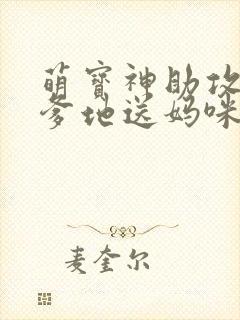 萌寳神助攻
爹地送妈咪
麦奎尔